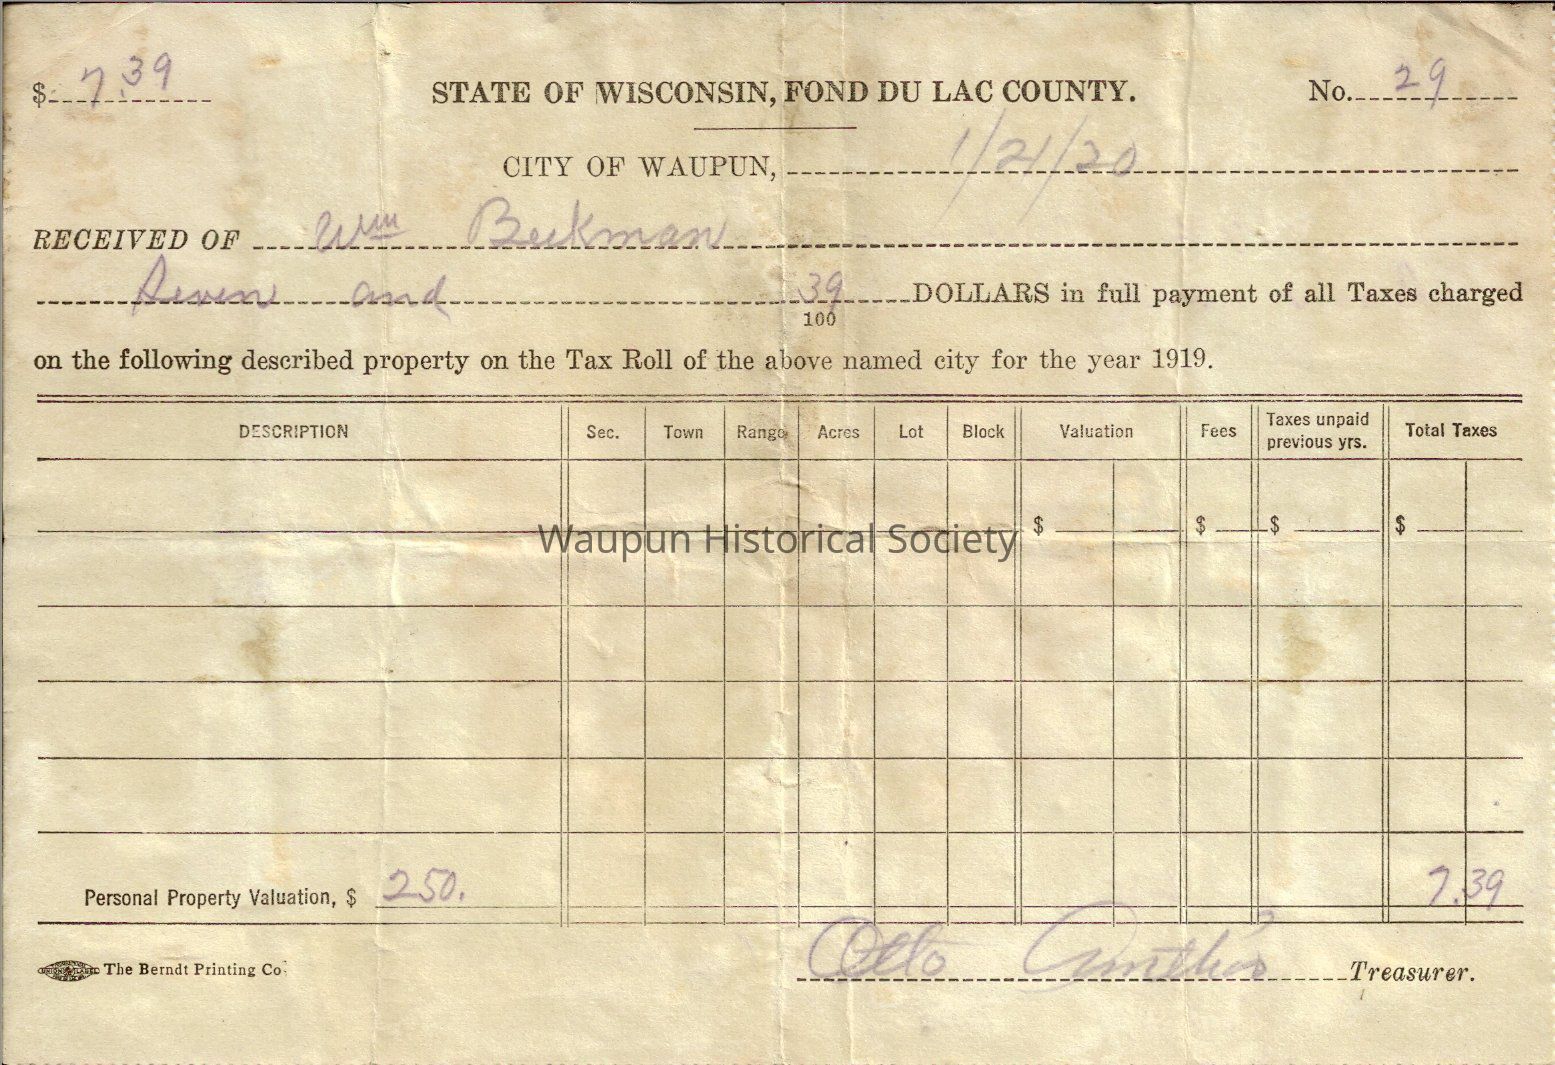 $ 7.39 STATE OF WISCONSIN, FOND DU LAC COUNTY. No. 29
CITY OF WAUPUN, 1/21/20
RECEIVED OF Wm Beekman
Seven and 39/100 DOLLARS in full payment of all Taxes charged
on the following described property on the Tax Roll of the above named city for the year 1919.
DESCRIPTION Sec. Town Range Acres Lot Block Valuation Fees Taxes unpaid previous yrs. Total Taxes
$ $ $ $
Waupun Historical Society
Personal Property Valuation, $ 250. 7.39
The Berndt Printing Co.
Otto Treasurer.